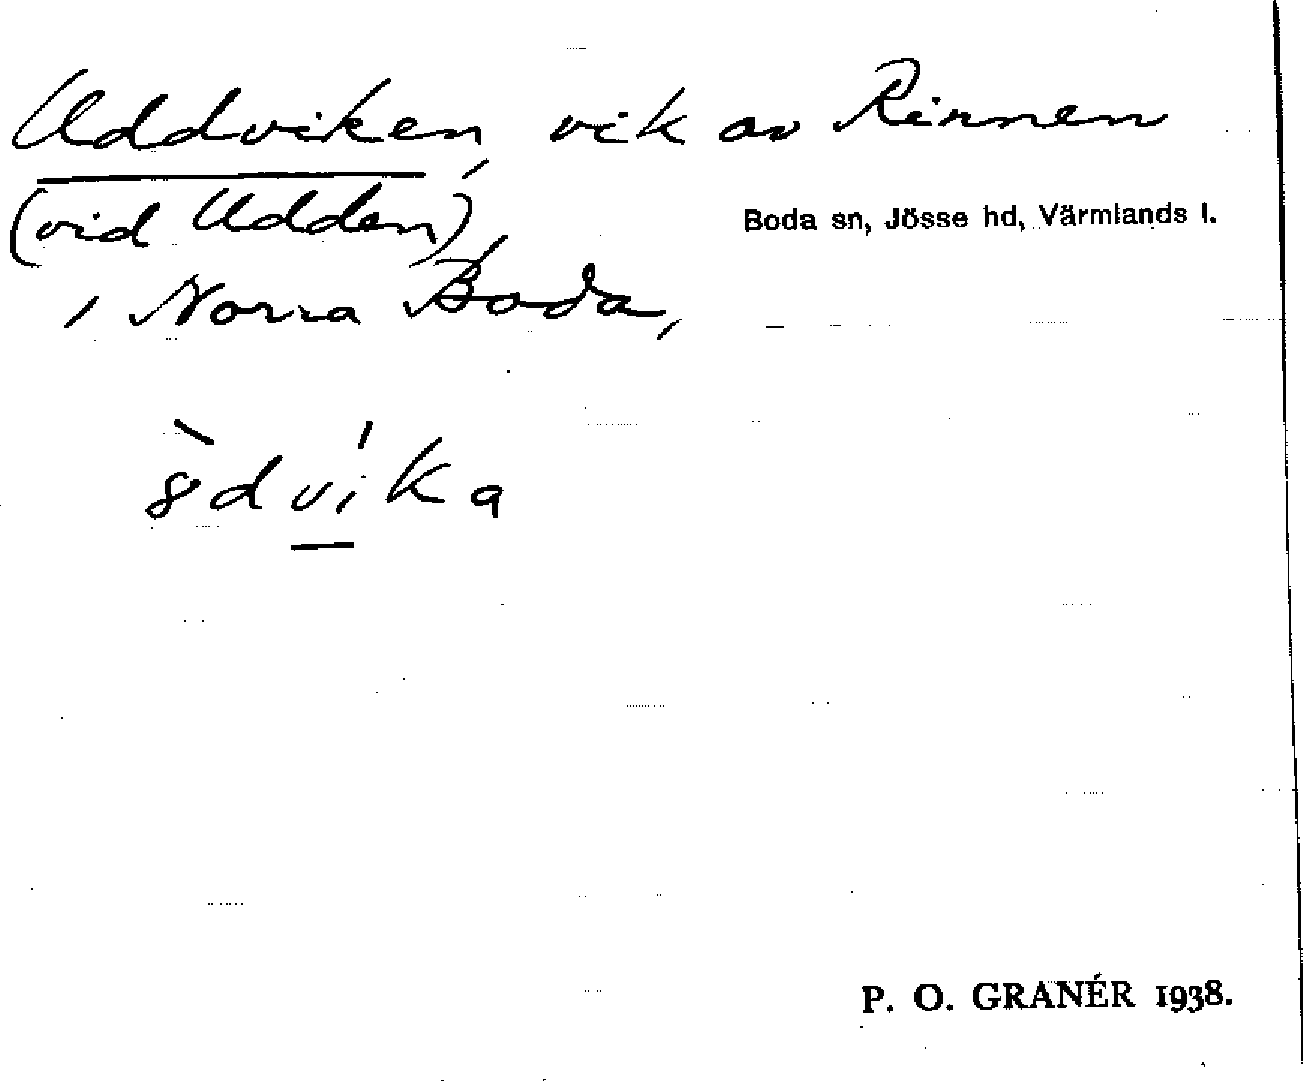 Uddviken, vik av Rinnen
(vid Udden),
Boda sn, Jösse hd, Värmlands l.
i Norra Boda,
8̀dvíka
P. O. GRANÉR 1938.